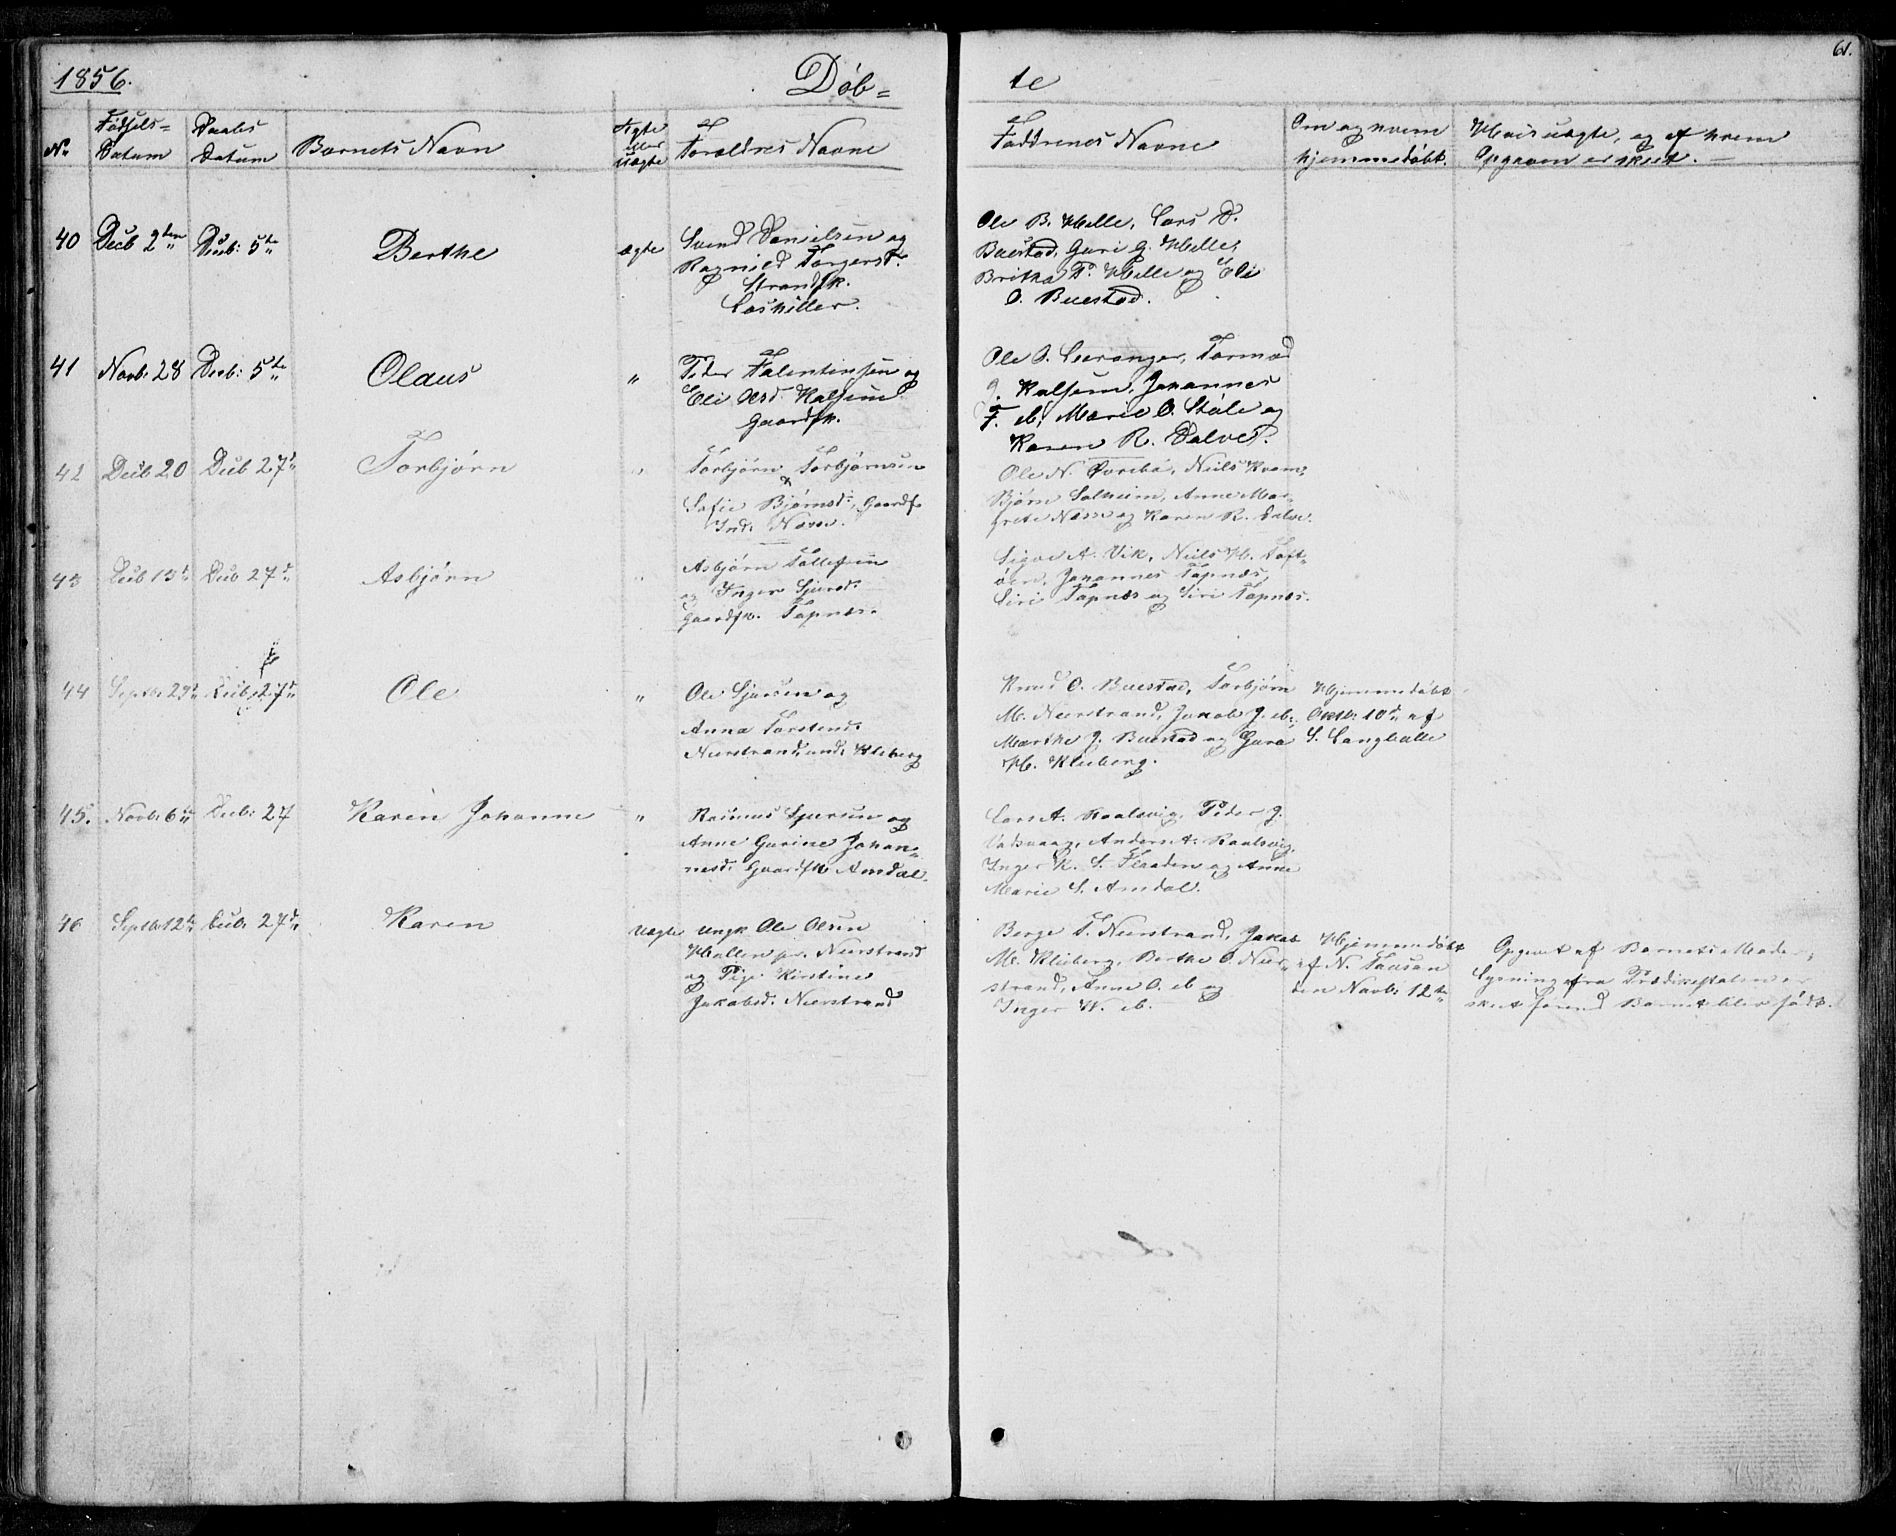 61.
1856. Døb= te
No Fødsels= Datum Daabs Datum Barnets Navn Ægte eller Uægte Forældres Navne Faddrenes Navne Om og hvem hjemmedøbt. Hvis uægte, og af hvem Opgaven er skeet. —
40 Decb 2den Decb: 5te Berthe ægte
Svend Danielsen og
Ragnild Torgersd.
Strandsk.
Ole B. Helle, Lars D.
Buestad, Guri G. Helle,
Britha T. Helle og Eli
O. Buestad.
41 Novb: 28 Decb: 5te Olaus "
Peder Falentinsen og
Eli Olsd. Halsem
Gaardsk.
Ole O. Leeranger, Tormod
G. Halsem, Johannes
F. ib, Marie O. Støle og
Karen R. Dalve.
42 Decb 20 Decb 27d Torbjørn "
Torbjørn Torbjørnsen
&
Sofie Bjørnsd. Gaardf.
Inds. Næss.
Ole N. Øvrebø, Niels Kvam,
Bjørn Solheim, Anne Mar-
grete Næss og Karen R. Dalve.
43 Decb 13d Decb 27d Asbjørn "
Asbjørn Tollefsen
og Inger Sjursd.
Gaardfk. Tapnæs.
Sigve A. Vik, Niels H. Toft-
øen, Johannes Tapnæs,
Siri Tapnæs og Siri Tapnæs.
44 Septb: 29d Decb: 27d Ole "
Ole Sjursen og
Anna Torstensd.
Neerstrand, und. Kleberg
Knud O. Buestad, Torbjørn
M. Neerstrand, Jakob J. ib,
Marthe J. Buestad og Guro
H. Kleberg.
Hjemmedøbt
Oktb: 10d af
S. Langballe
45. Novb: 6te Decb: 27 Karen Johanne "
Rasmus Sjursen og
Anne Gurine Johan-
nesd. Gaardfk Amdal.
Lars A. Raalsvig, Peder J.
Anders A. Raalsvig,
Inger K. S. Flaaden og Anne
Marie S. Amdal.
46 Septb 12te Decb. 27d Karen Uægte
Ungk Ole Olsen
Hallen pr. Neerstrand
og Pige Kirstine
Jakobsd. Neerstrand
Berge T. Neerstrand, Jakob
M. Kleberg, Berthe O. Neer-
strand, Anne O. ib og
Inger W. ib.
Hjemmedøbt
af N. Tausan
den Novb: 12te
Opgivet af Barnets Moder,
Lysning fra Prædikestolen er
skeet førend Barnet blev født.